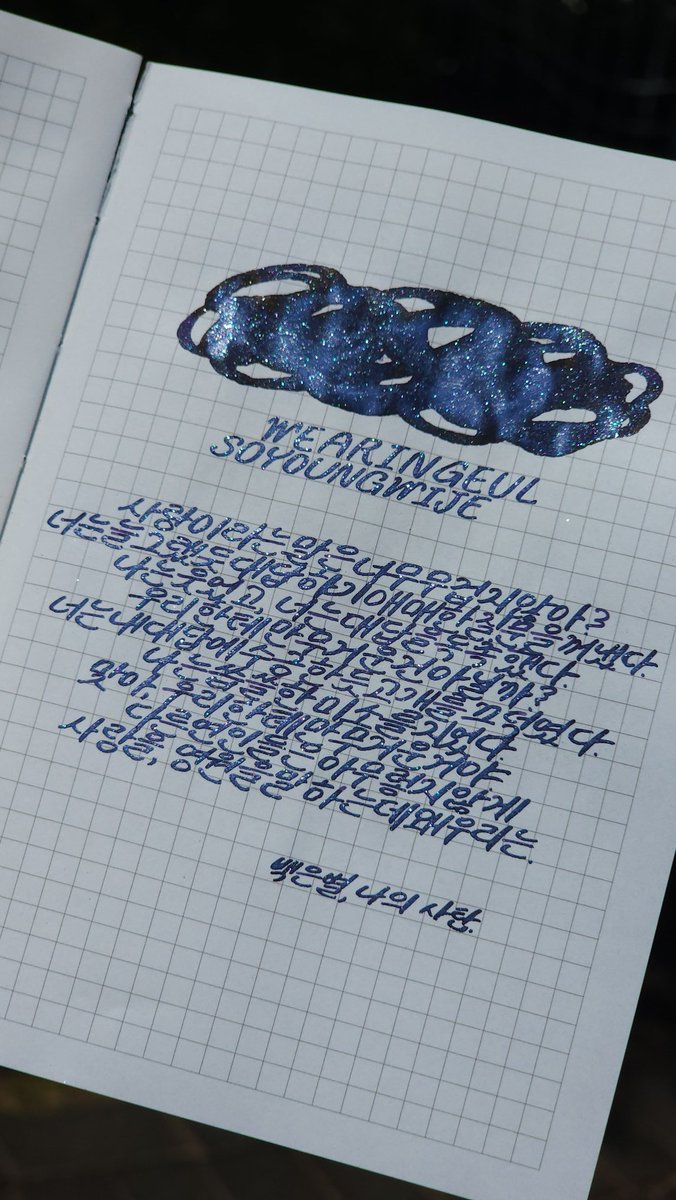 WEARINGEUL
SOYOUNGWIJE
사랑이라는 말은 너무 우습지 않아?
너는 늘 그랬듯 대답하기 애매한 질문을 꺼냈다.
나는 웃었고, 너는 대답을 독촉했다.
우리한테만 무거운 것 아닐까?
너는 내 대답에 수긍하듯 고개를 끄덕였다.
나는 씁쓸한 미소를 지었다.
맞아, 우리한테만 무거운 거야.
다른 연인들은 아무렇지 않게
사랑을, 영원을 말하는데 왜 우리는.
백은별, 나의 사탄.